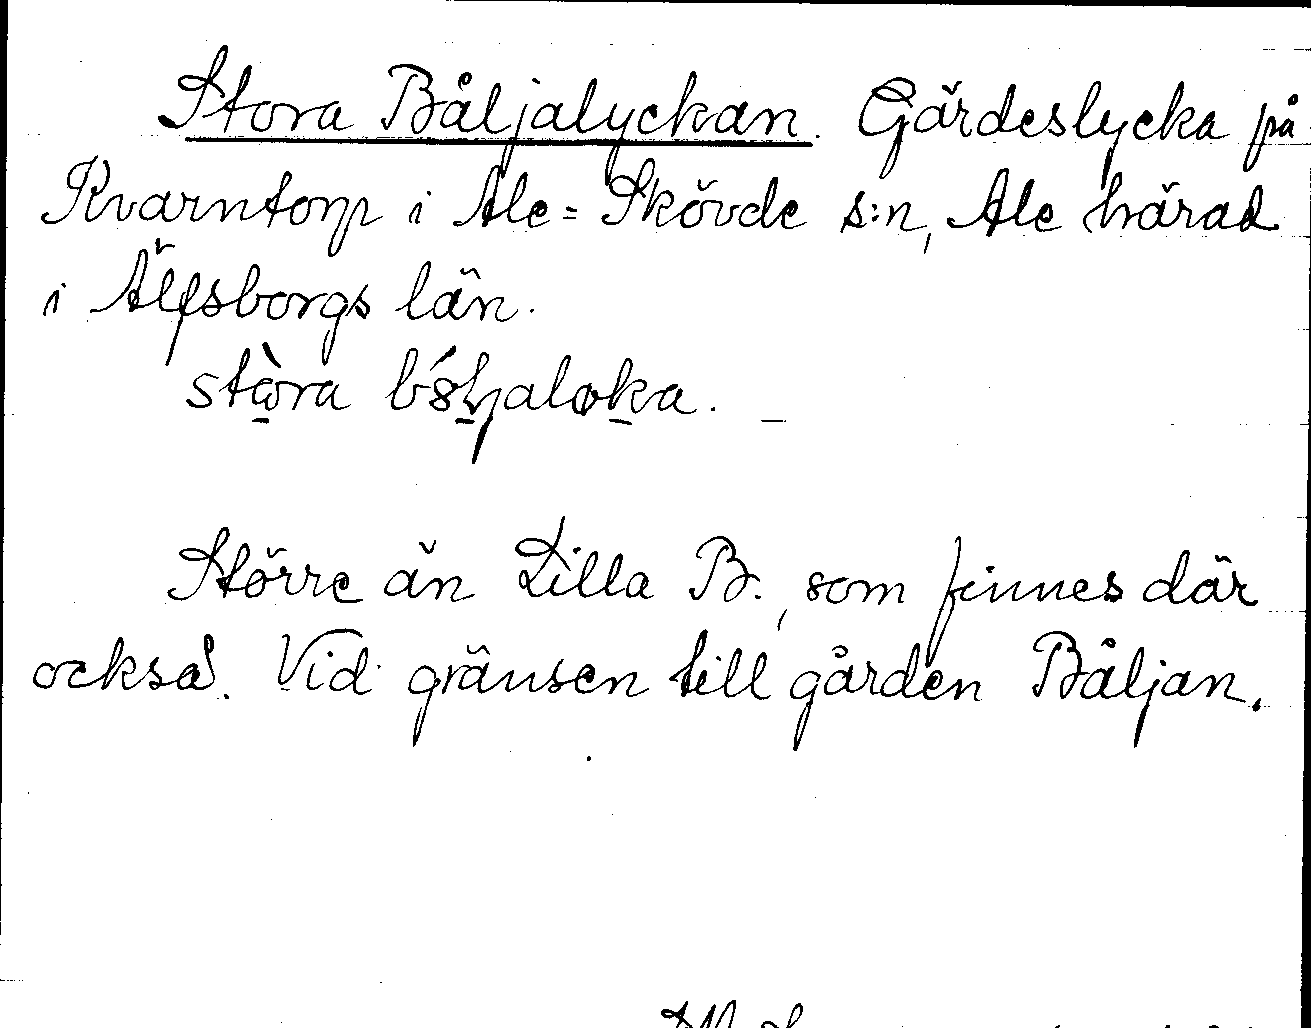 Stora Båljalyckan. Gärdeslycka på
Kvarntorp i Ale=Skövde s:n, Ale härad
i Älfsborgs län.
stòra
Större än Lilla B., som finnes där
också. Vid gränsen till gården Båljan.